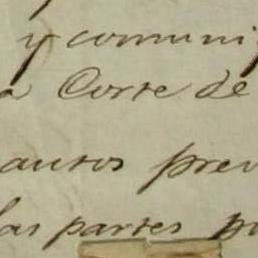 y comuni
a Corte de
autos prev
las partes p